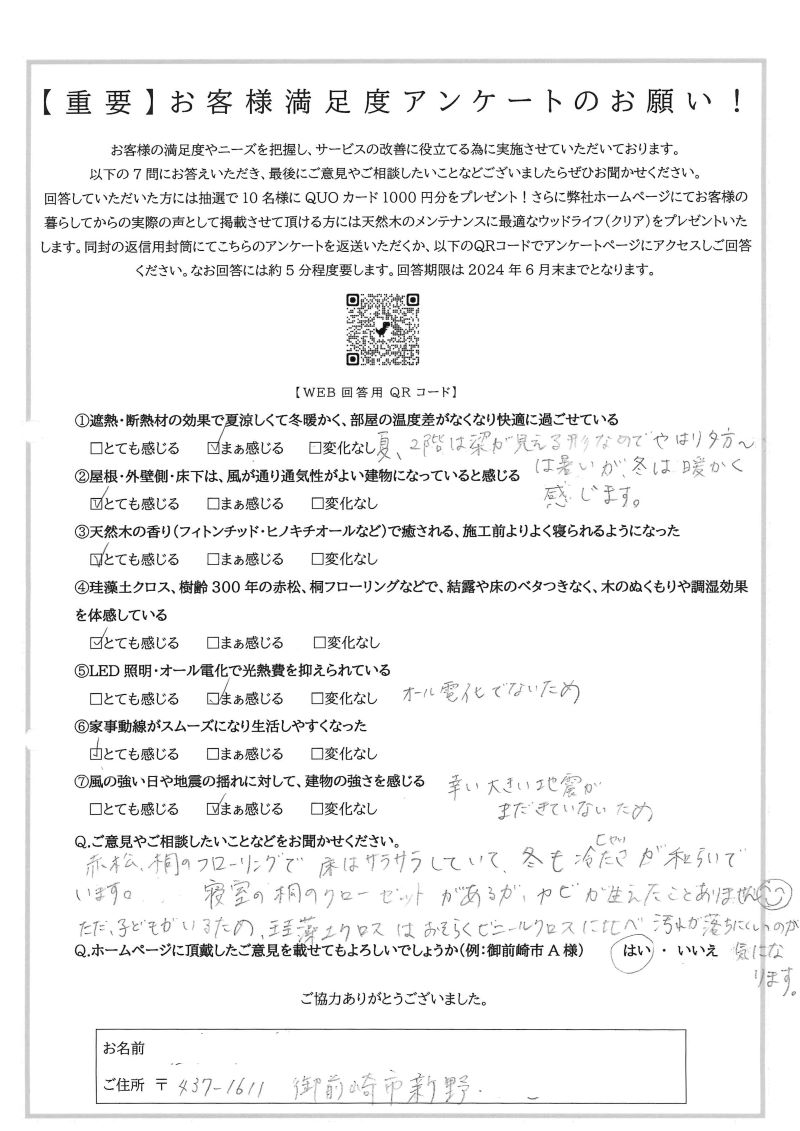 【重要】お客様満足度アンケートのお願い！
お客様の満足度やニーズを把握し、サービスの改善に役立てる為に実施させていただいております。
以下の7問にお答えいただき、最後にご意見やご相談したいことなどございましたらぜひお聞かせください。
回答していただいた方には抽選で10名様にQUOカード1000円分をプレゼント！さらに弊社ホームページにてお客様の
暮らしてからの実際の声として掲載させて頂ける方には天然木のメンテナンスに最適なウッドライフ(クリア)をプレゼントいた
します。同封の返信用封筒にてこちらのアンケートを返送いただくか、以下のQRコードでアンケートページにアクセスしご回答
ください。なお回答には約5分程度要します。回答期限は2024年6月末までとなります。
【WEB回答用QRコード】
①遮熱・断熱材の効果で夏涼しくて冬暖かく、部屋の温度差がなくなり快適に過ごせている
□とても感じる ☑まぁ感じる □変化なし 夏、2階は梁が見える形なのでやはり夕方〜
は暑いが、冬は暖かく
感じます。
②屋根・外壁側・床下は、風が通り通気性がよい建物になっていると感じる
☑とても感じる □まぁ感じる □変化なし
③天然木の香り(フィトンチッド・ヒノキチオールなど)で癒される、施工前よりよく寝られるようになった
☑とても感じる □まぁ感じる □変化なし
④珪藻土クロス、樹齢300年の赤松、桐フローリングなどで、結露や床のベタつきなく、木のぬくもりや調湿効果
を体感している
☑とても感じる □まぁ感じる □変化なし
⑤LED照明・オール電化で光熱費を抑えられている
□とても感じる ☑まぁ感じる □変化なし オール電化でないため
⑥家事動線がスムーズになり生活しやすくなった
☑とても感じる □まぁ感じる □変化なし
⑦風の強い日や地震の揺れに対して、建物の強さを感じる
幸い大きい地震が
□とても感じる ☑まぁ感じる □変化なし まだきていないため
Q.ご意見やご相談したいことなどをお聞かせください。
赤松、桐のフローリングで 床はサラサラしていて、冬も冷たさが和らいで
います。 寝室の桐のクローゼットがあるが、カビが生えたことありません
ただ、子どもがいるため、珪藻土クロスはおそらくビニールクロスに比べ 汚れが落ちにくいのが
Q.ホームページに頂戴したご意見を載せてもよろしいでしょうか(例：御前崎市A様) はい・いいえ 気にな
ります。
ご協力ありがとうございました。
お名前
ご住所 〒 437-1611 御前崎市新野